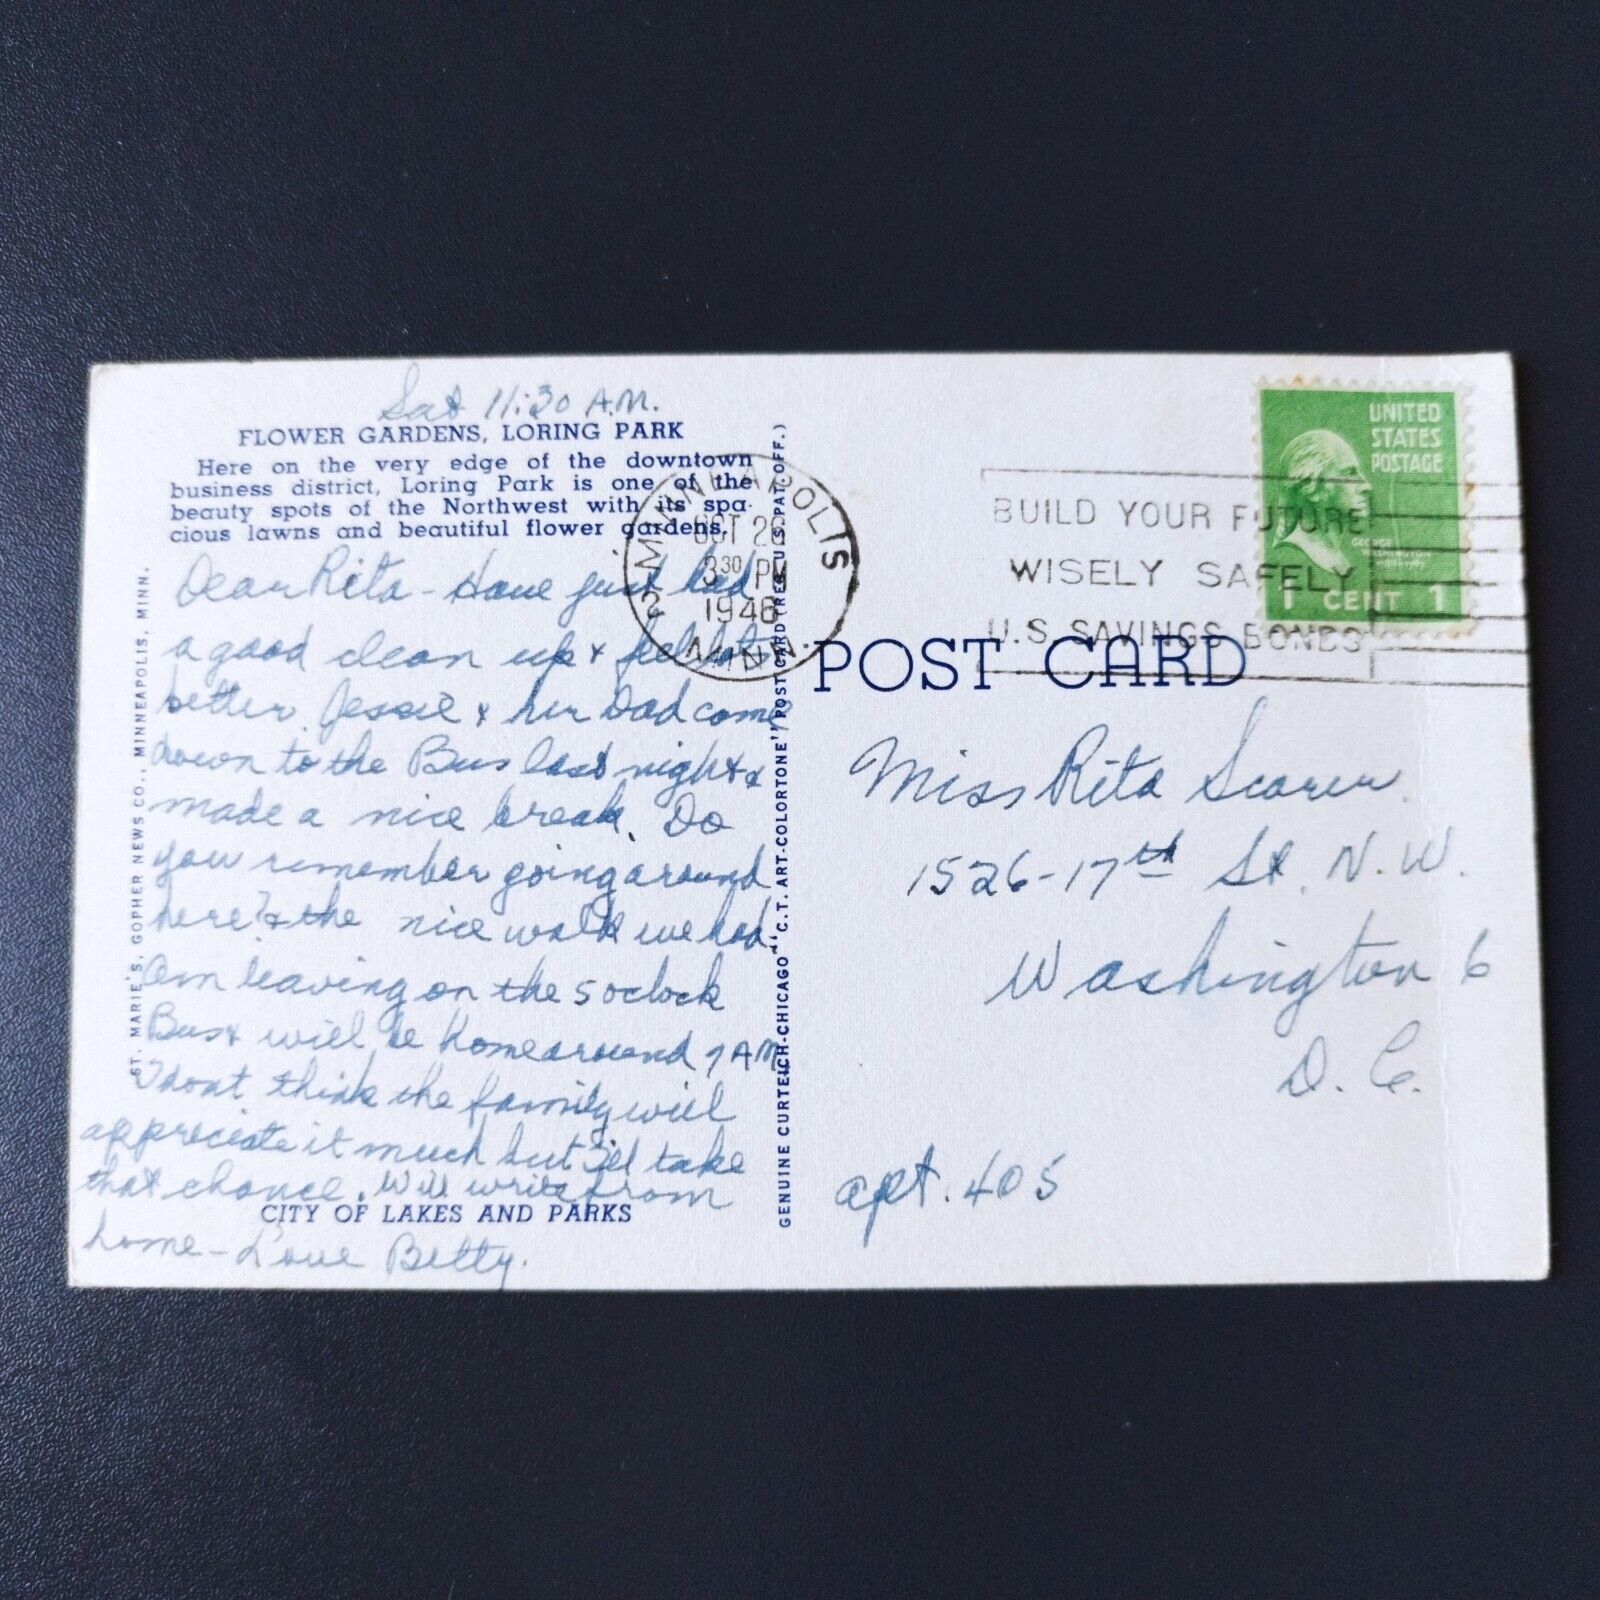 Sat 11:30 A.M.
FLOWER GARDENS, LORING PARK
Here on the very edge of the downtown
business district, Loring Park is one of the
beauty spots of the Northwest with its spa-
cious lawns and beautiful flower gardens.
Dear Rita - Have just had
a good clean up & feel lots
better. Jessie & her Dad come
down to the Bus last night &
made a nice break. Do
you remember going around
here? & the nice walk we had
Am leaving on the 5 oclock
Bus & will be home around 7 AM
I dont think the family will
appreciate it much but I'll take
that chance. Will write from
home - Love Betty.
CITY OF LAKES AND PARKS
ST. MARIE'S, GOPHER NEWS CO., MINNEAPOLIS, MINN.
GENUINE CURTEICH-CHICAGO "C.T. ART-COLORTONE" POST CARD (REG. U.S. PAT. OFF.)
MINNEAPOLIS 2
OCT 26
3 30 PM
1946
MINN.
BUILD YOUR FUTURE
WISELY SAFELY
U.S. SAVINGS BONDS
UNITED
STATES
POSTAGE
GEORGE
WASHINGTON
1 CENT 1
POST CARD
Miss Rita Scarer
1526-17th St. N.W.
Washington 6
D.C.
apt. 405